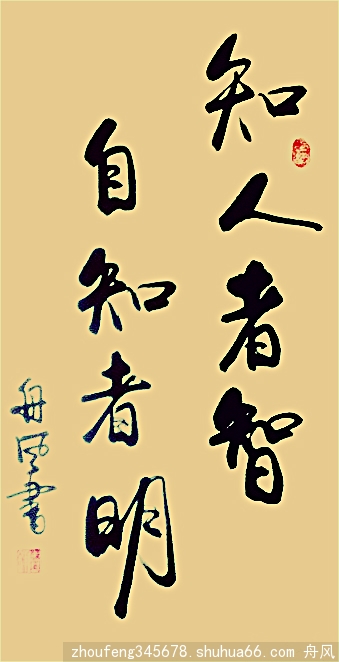 知人者智
自知者明
舟风书
zhoufeng345678.shuhua66.com 舟风